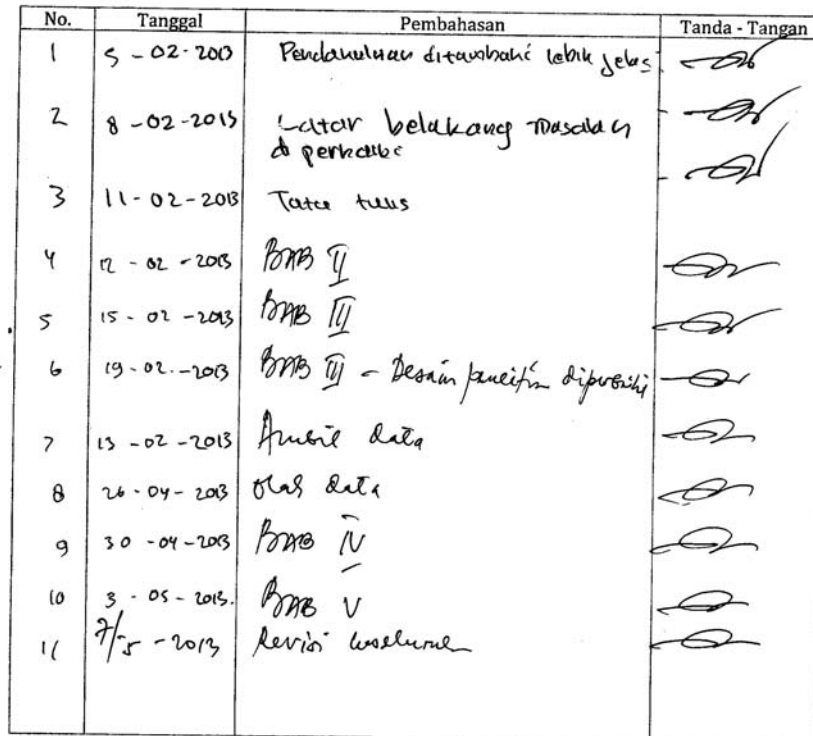 No. Tanggal Pembahasan Tanda - Tangan
1 5 - 02 - 2013 Pendahuluan ditambahi lebih jelas
2 8 - 02 - 2013 Latar belakang masalah
diperbaiki
3 11 - 02 - 2013 Tata tulis
4 12 - 02 - 2013 BAB II
5 15 - 02 - 2013 BAB III
6 19 - 02 - 2013 BAB III - Desain penelitian diperbaiki
7 13 - 02 - 2013 Ambil data
8 26 - 04 - 2013 Olah data
9 30 - 04 - 2013 BAB IV
10 3 - 05 - 2013. BAB V
11 7/-5 - 2013 Revisi